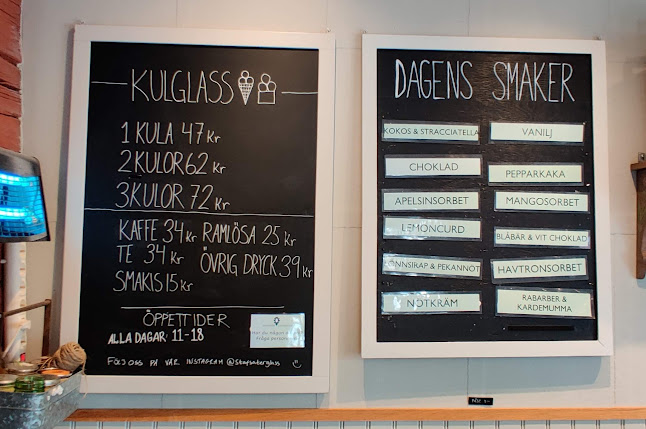 KULGLASS
1 KULA 47 kr
2 KULOR 62 kr
3 KULOR 72 kr
KAFFE 34 kr RAMLÖSA 25 kr
TE 34 kr ÖVRIG DRYCK 39 kr
SMAKIS 15 kr
ÖPPETTIDER
ALLA DAGAR: 11-18
FÖLJ OSS PÅ VÅR INSTAGRAM
DAGENS SMAKER
KOKOS & STRACCIATELLA
VANILJ
CHOKLAD
PEPPARKAKA
APELSINSORBET
MANGOSORBET
LEMONCURD
BLÅBÄR & VIT CHOKLAD
LÖNNSIRAP & PEKANNÖT
HAVTRONSORBET
NÖTKRÄM
RABARBER &
KARDEMUMMA